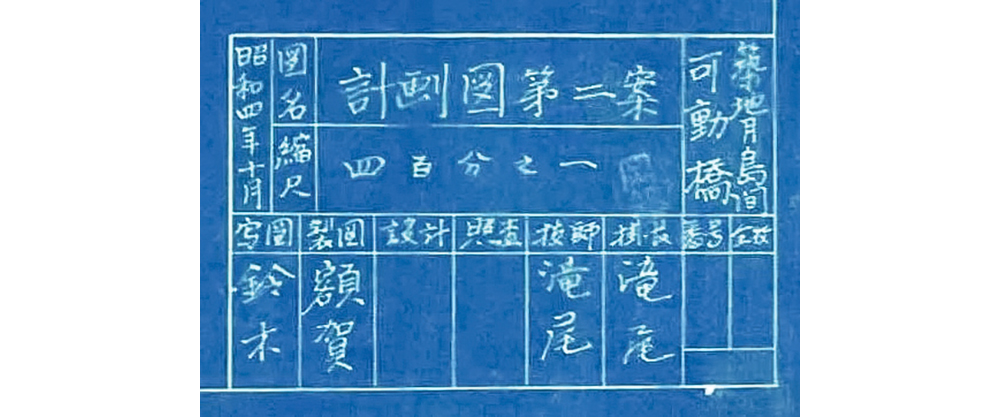 築地月島間
可動橋
図名
計画図第二案
縮尺
四百分之一
昭和四年十月
番号
技師
滝尾
照査
設計
製図
額賀
写図
鈴木
滝尾